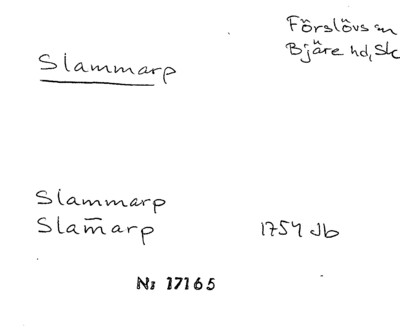 Förslövs sn
Bjäre hd, Sk
Slammarp
Slammarp
Slam̄arp 1754 Jb
N: 17165